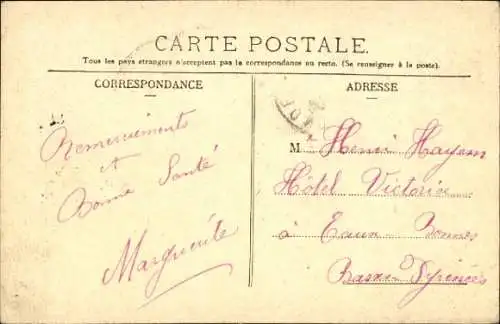 CARTE POSTALE.
Tous les pays étrangers n'acceptent pas la correspondance au recto. (Se renseigner à la poste).
CORRESPONDANCE
Remerciements
et
Bonne Santé
Marguerite
ADRESSE
M Henri Hayem
Hôtel Victoria
à Eaux-Bonnes
Basses Pyrénées